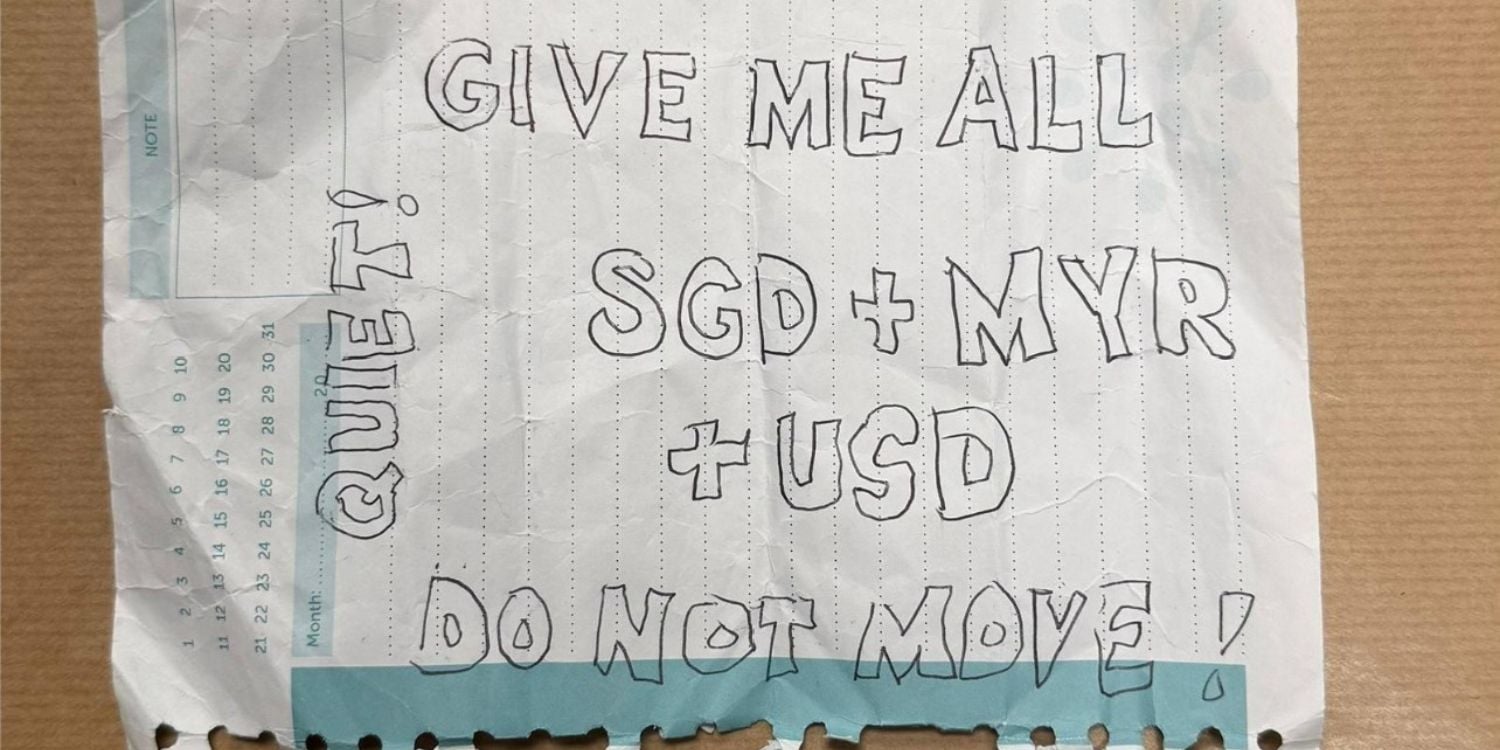 GIVE ME ALL
SGD + MYR
+ USD
DO NOT MOVE!
QUIET!
NOTE
Month:
20
1 2 3 4 5 6 7 8 9 10
11 12 13 14 15 16 17 18 19 20
21 22 23 24 25 26 27 28 29 30 31